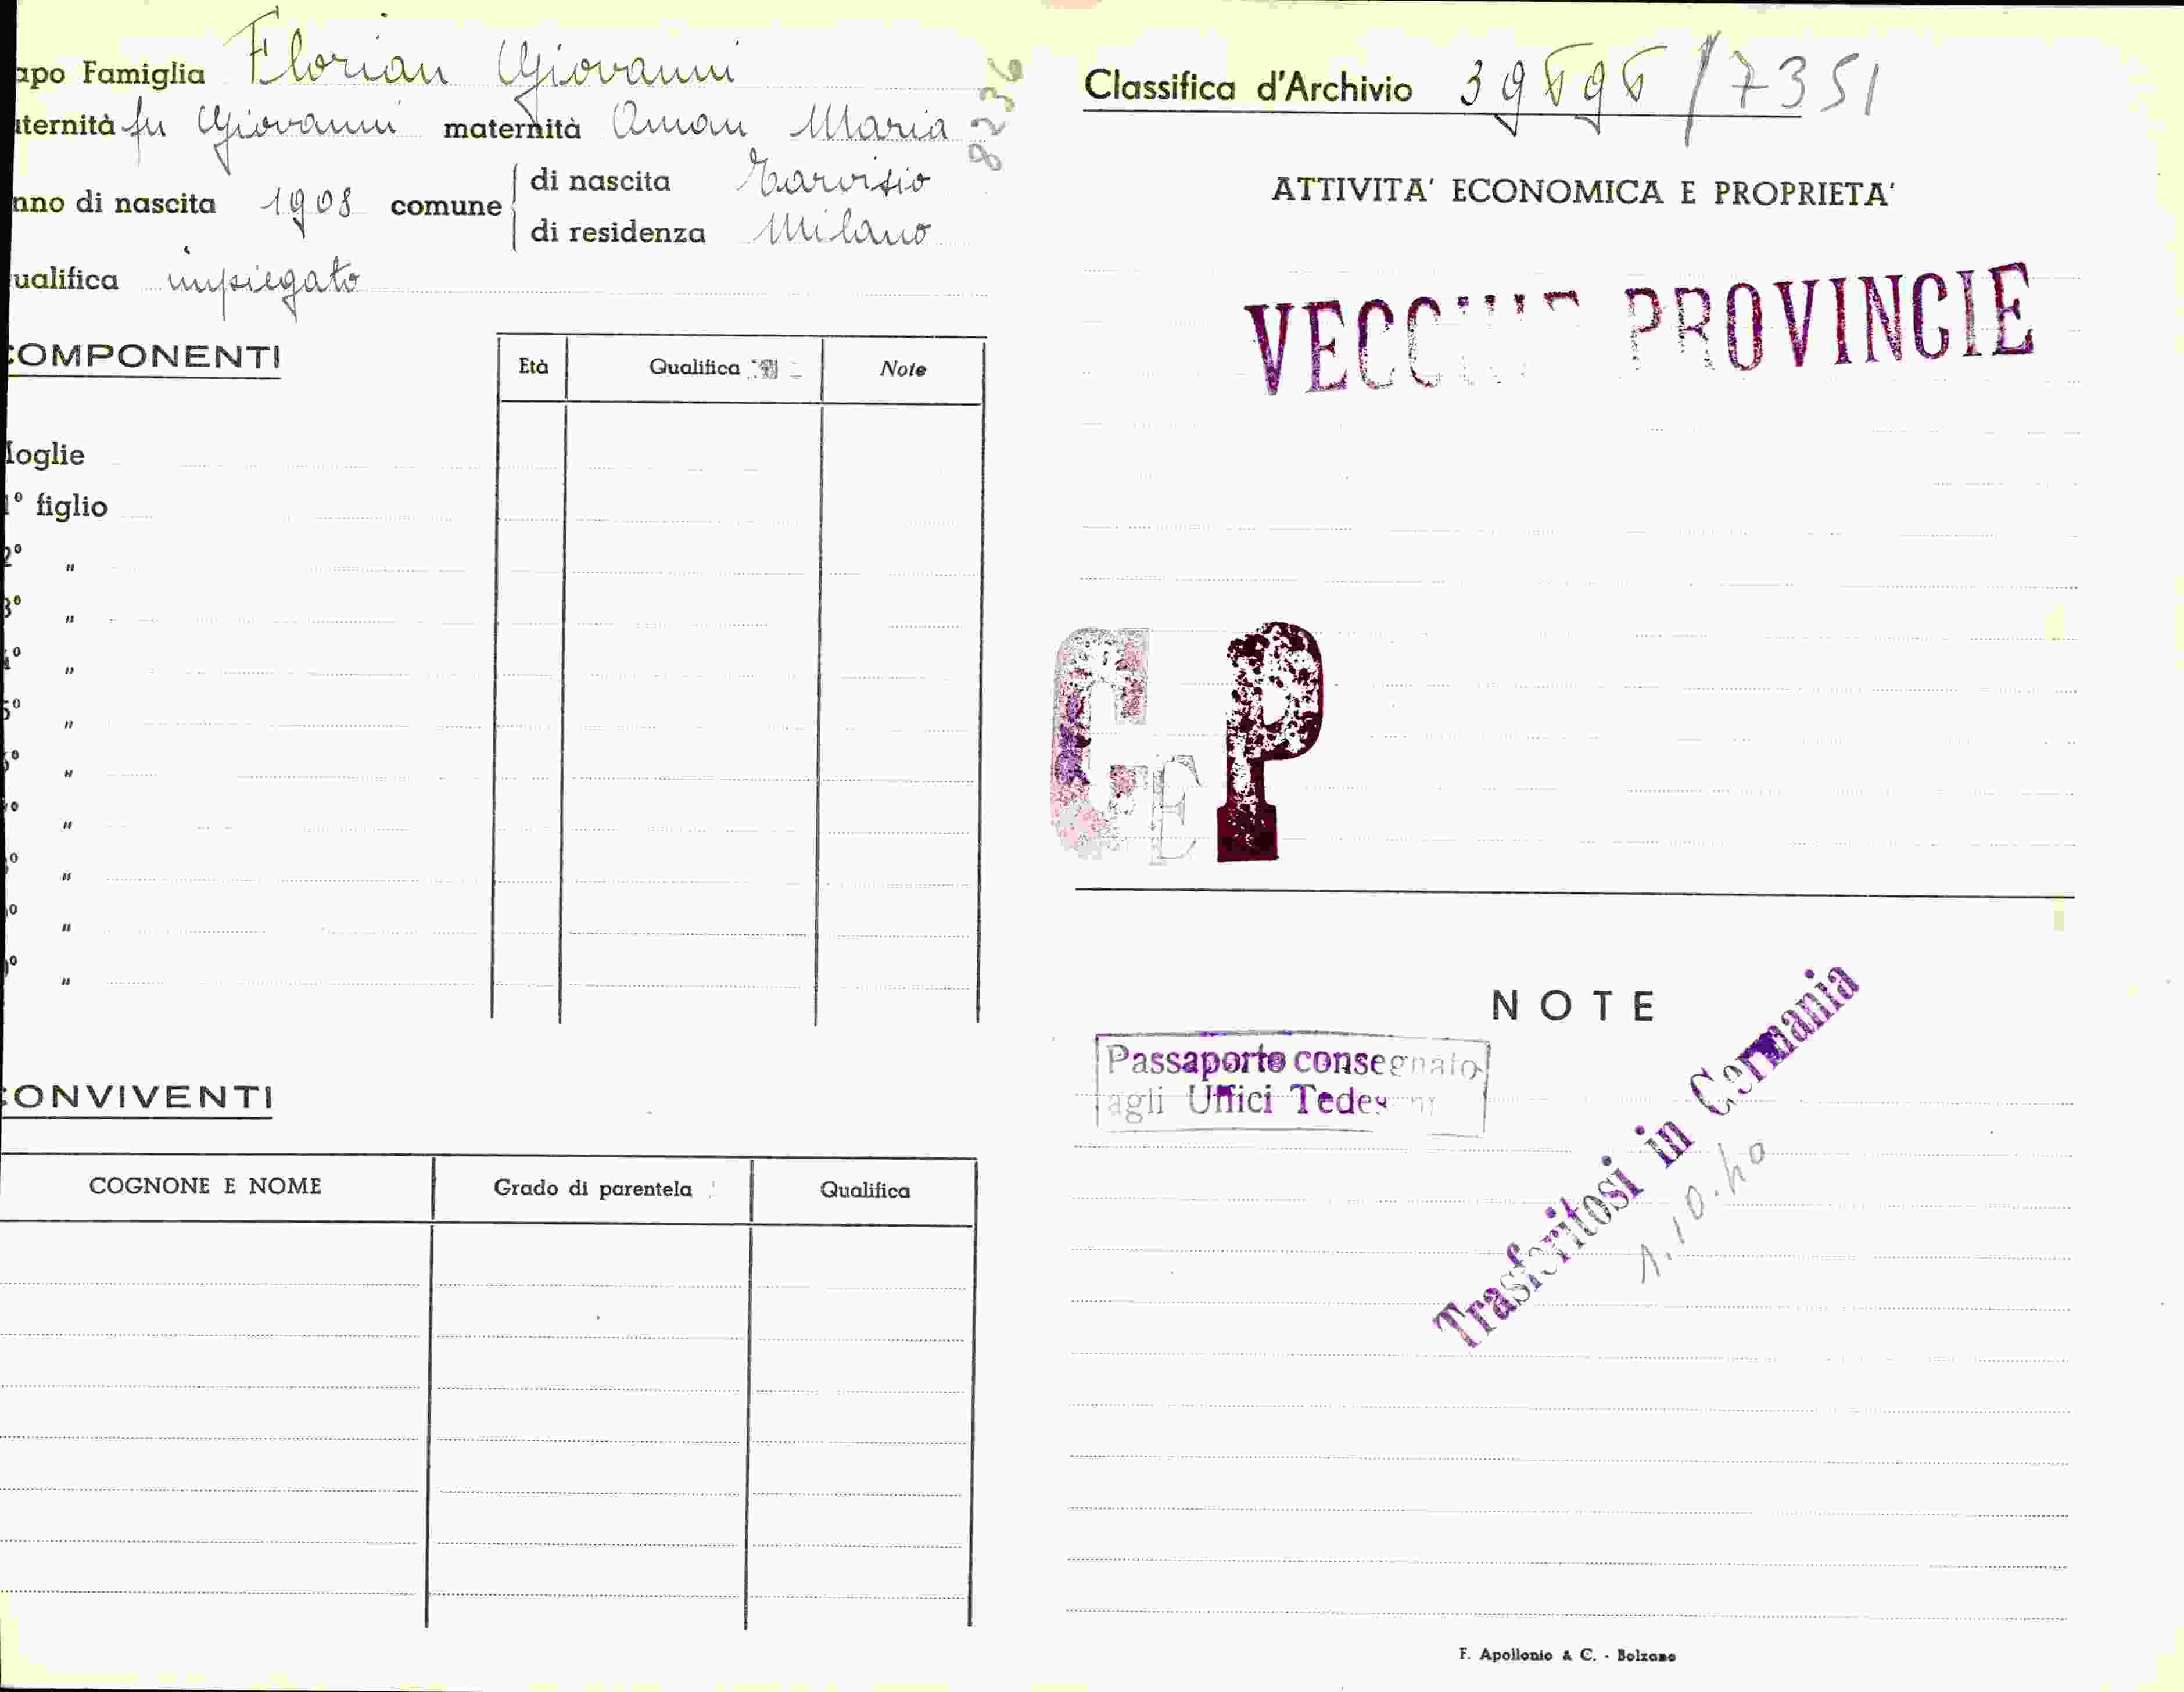 apo Famiglia Florian Giovanni
aternità fu Giovanni maternità Aman Maria
8236
nno di nascita 1908 comune di nascita Tarvisio
di residenza Milano
ualifica impiegato
COMPONENTI
Età Qualifica Note
Moglie
1° figlio
2° "
3° "
4° "
5° "
6° "
7° "
8° "
9° "
0° "
CONVIVENTI
COGNONE E NOME Grado di parentela Qualifica
Classifica d'Archivio 39696/7351
ATTIVITA' ECONOMICA E PROPRIETA'
VECCHIE PROVINCIE
C E P
NOTE
Passaporto consegnato
agli Uffici Tedeschi
Trasferitosi in Germania
1.10.40
F. Apollonio & C. - Bolzano